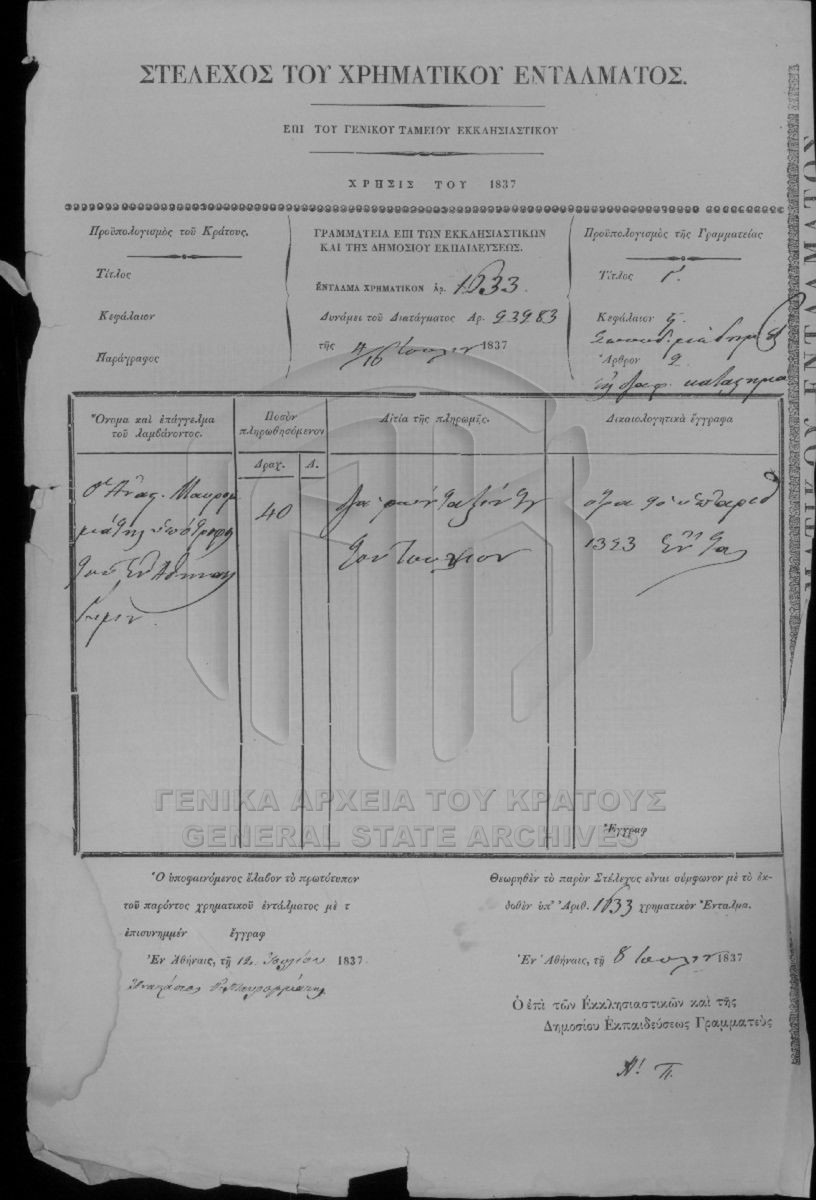 ΣΤΕΛΕΧΟΣ ΤΟΥ ΧΡΗΜΑΤΙΚΟΥ ΕΝΤΑΛΜΑΤΟΣ.
ΕΠΙ ΤΟΥ ΓΕΝΙΚΟΥ ΤΑΜΕΙΟΥ ΕΚΚΛΗΣΙΑΣΤΙΚΟΥ
ΧΡΗΣΙΣ ΤΟΥ 1837
Προϋπολογισμὸς τοῦ Κράτους.
Τίτλος
Κεφάλαιον
Παράγραφος
ΓΡΑΜΜΑΤΕΙΑ ΕΠΙ ΤΩΝ ΕΚΚΛΗΣΙΑΣΤΙΚΩΝ
ΚΑΙ ΤΗΣ ΔΗΜΟΣΙΟΥ ΕΚΠΑΙΔΕΥΣΕΩΣ.
ΕΝΤΑΛΜΑ ΧΡΗΜΑΤΙΚΟΝ Αρ. 1033.
Δυνάμει τοῦ Διατάγματος Αρ. 23983
τῆς 4/16 Ἰουλίου 1837
Προϋπολογισμὸς τῆς Γραμματείας
Τίτλος Γ.
Κεφάλαιον
Ἄρθρον 2
Ὄνομα καὶ ἐπάγγελμα
τοῦ λαμβάνοντος.
Ποσὸν
πληρωθησόμενον
Δραχ. Λ.
Αἰτία τῆς πληρωμῆς.
Δικαιολογητικὰ ἔγγραφα
Ὁ Ἀθαν.
40
τὸν Ἰούλιον
1323
Ἔγγραφ
ΓΕΝΙΚΑ ΑΡΧΕΙΑ ΤΟΥ ΚΡΑΤΟΥΣ
GENERAL STATE ARCHIVES
Ὁ ὑποφαινόμενος ἔλαβον τὸ πρωτότυπον
τοῦ παρόντος χρηματικοῦ ἐντάλματος μὲ τ
ἐπισυνημμέν ἔγγραφ
Ἐν Ἀθήναις, τῇ 12 Ἰουλίου 1837.
Θεωρηθὲν τὸ παρὸν Στέλεχος εἶναι σύμφωνον μὲ τὸ ἐκ-
δοθὲν ὑπ' Ἀριθ. 1033 χρηματικὸν Ἔνταλμα.
Ἐν Ἀθήναις, τῇ 8 Ἰουλίου 1837
Ὁ ἐπὶ τῶν Ἐκκλησιαστικῶν καὶ τῆς
Δημοσίου Ἐκπαιδεύσεως Γραμματεὺς
ΜΑΤΙΚΟΝ ΕΝΤΑΛΜΑΤΟΣ